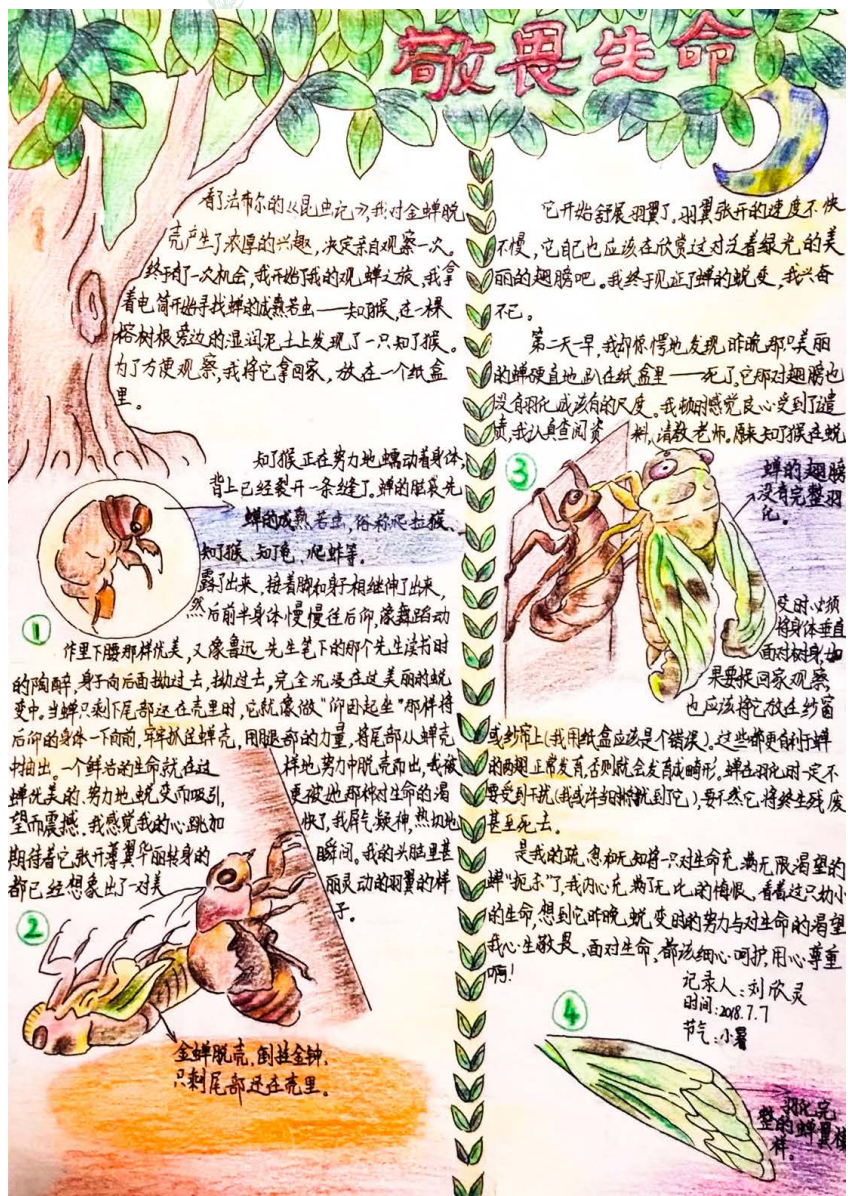 敬畏生命
看了法布尔的《昆虫记》，我对金蝉脱
壳产生了浓厚的兴趣，决定亲自观察一次。
终于有了一次机会，我开始了我的观蝉之旅，我拿
着电筒开始寻找蝉的成熟若虫——知了猴，在一棵
榕树根旁边的湿润泥土上发现了一只知了猴。
为了方便观察，我将它拿回家，放在一个纸盒
里。
知了猴正在努力地蠕动着身体，
背上已经裂开一条缝了。蝉的脑袋先
蝉的成熟若虫，俗称爬拉猴、
知了猴、知了龟、爬蚱等。
露了出来，接着脚和身子相继伸了出来，
然后前半身体慢慢往后仰，像舞蹈动
①
作里下腰那样优美，又像鲁迅先生笔下的那个先生读书时
的陶醉，身子向后面拗过去，拗过去，完全沉浸在这美丽的蜕
变中。当蝉只剩下尾部还在壳里时，它就像做“仰卧起坐”那样将
后仰的身体一下向前，牢牢抓住蝉壳，用腿部的力量，将尾部从蝉壳
中抽出。一个鲜活的生命就在这样地努力中脱壳而出，我被
蝉优美的、努力地蜕变而吸引，更被她那种对生命的渴
望而震撼。我感觉我的心跳加快了，我屏气凝神，热切地
期待着它张开薄翼华丽转身的瞬间。我的头脑里甚
都已经想象出了一对美丽灵动的羽翼的样
子。
②
金蝉脱壳，倒挂金钟，
只剩尾部还在壳里。
它开始舒展羽翼了。羽翼张开的速度不快
不慢，它自己也应该在欣赏这对泛着绿光的美
丽的翅膀吧。我终于见证了蝉的蜕变，我兴奋
不已。
第二天一早，我却惊愕地发现昨晚那只美丽
的蝉硬直地趴在纸盒里——死了，它那对翅膀也
没有羽化成该有的尺度。我顿时感觉良心受到了谴
责，我认真查阅资料，请教老师。原来知了猴在蜕
③
蝉的翅膀
没有完整羽
化。
变时必须
将身体垂直
面对树身，如
果要捉回家观察，
也应该将它放在纱窗
或纱帘上（我用纸盒应该是个错误）。这些都更有利于蝉
的两翅正常发育，否则就会发育成畸形，蝉在羽化时一定不
要受到干扰（我或许拍照打扰到了它），要不然它将终生残废
甚至死去。
是我的疏忽和无知将一只对生命充满无限渴望的
蝉“扼杀”了，我内心充满了无比的悔恨。看着这只幼小
的生命，想到它昨晚蜕变时的努力与对生命的渴望
我心生敬畏，面对生命，都该细心呵护，用心尊重
啊！
记录人：刘欣灵
时间：2018.7.7
节气：小暑
④
羽化完
整的蝉翼模
样。